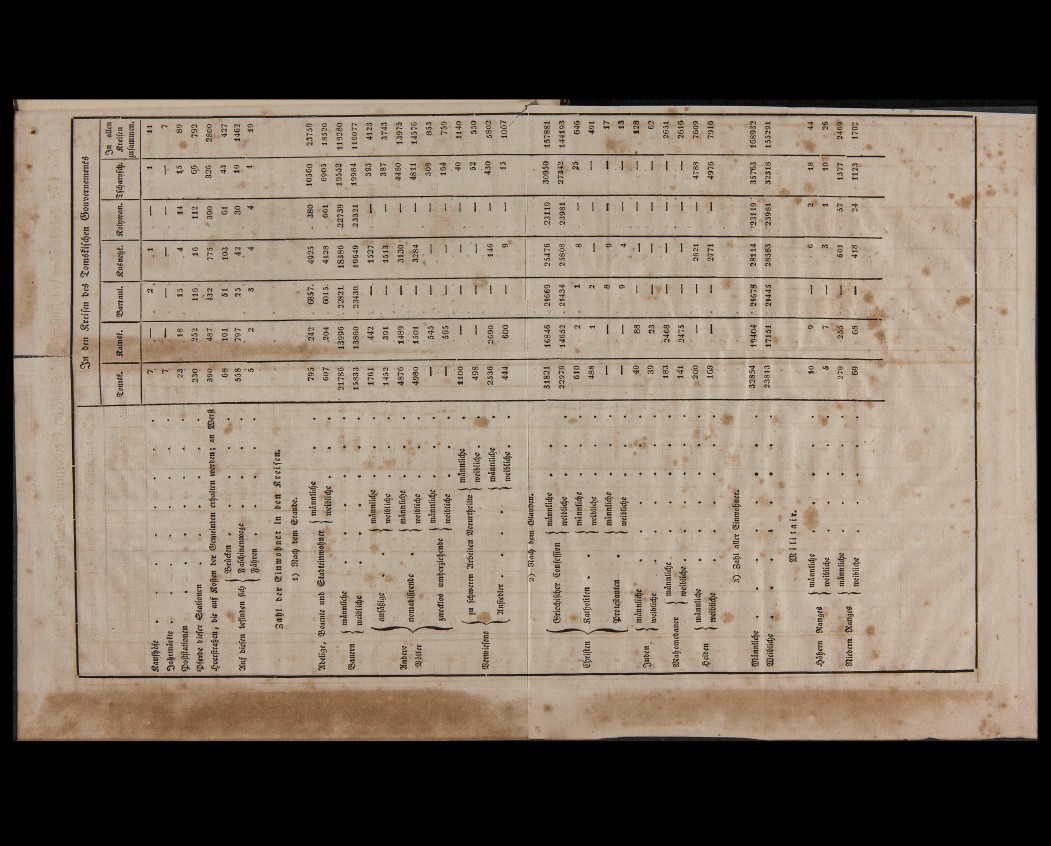 In den Kreisen des Tomskischen Gouvernements
Tomsk. Kainsk. Barnaul. Kusnetzk. Kolywan. Tscharysch. In allen Kreisen zusammen.
Kaufhöfe 7 — 2 1 — 1 11
Jahrmärkte 7 — — — — — 7
Poststationen 23 18 15 4 14 15 89
Pferde dieser Stationen 230 252 116 16 112 66 792
Heerstraßen, die auf Kosten der Gemeinden erhalten werden; an Werst 390 487 432 775 390 326 2800
Auf diesen befinden sich Brücken 68 101 51 103 61 43 427
Faschinenwege 558 797 25 42 30 10 1462
Fähren 5 2 3 4 4 1 19
Zahl der Einwohner in den Kreisen.
1) Nach dem Stande.
Adelige, Beamte und Stadteinwohner männliche 795 242 6857. 4925 380 10560 23759
weibliche 607 204 6015. 4128 661 6905 18520
Bauern männliche 21786 13996 22821. 18386 22739 19552 119280
weibliche 15833 13860 23430. 19649 23321 19984 116077
Andere Völker ansäßige männliche 1761 442 — 1527 — 393 4123
weibliche 1452 391 — 1513 — 387 3743
nomadisirende männliche 4876 1489 — 3130 — 4480 13975
weibliche 4980 1501 — 3284 — 4811 14576
zwecklos umherziehende männliche — 545 — — — 308 853
weibliche — 595 — — — 164 759
Verwiesene zu schweren Arbeiten Verurtheilte männliche 1100 — — — — 40 1140
weibliche 498 — — — — 52 550
Ansiedler männliche 2536 2690 — 146 — 430 5802
weibliche 444 600 — 9 — 15 1067
2) Nach dem Glauben.
Christen Griechischer Confession männliche 31821 16846 24669 25476 23119 30950 157881
weibliche 22976 14652 24434 25808 23981 27342 144193
Katholiken männliche 610 2 1 8 — 25 646
weibliche 488 1 2 — — — 491
Protestanten männliche — — 8 9 — — 17
weibliche — — 9 4 — — 13
Juden männliche 40 88 — — — — 128
weibliche 39 23 — — — — 62
Mahomedaner männliche 183 2468 — — — — 2651
weibliche 141 2475 — — — — 2616
Heiden männliche 200 — — 2621 — 4788 7609
weibliche 169 — — 2771 — 4976 7916
3) Zahl aller Einwohner.
Männliche 32854 19404 24678 28114 23119 35763 168932
Weibliche 23813 17151 24445 28583 23981 32318 155291
Militair.
Höhern Ranges männliche 10 9 — 6 2 18 44
weibliche 5 7 — 3 1 10 26
Niedern Ranges männliche 279 255 — 601 57 1377 2469
weibliche 69 68 — 418 24 1123 1702